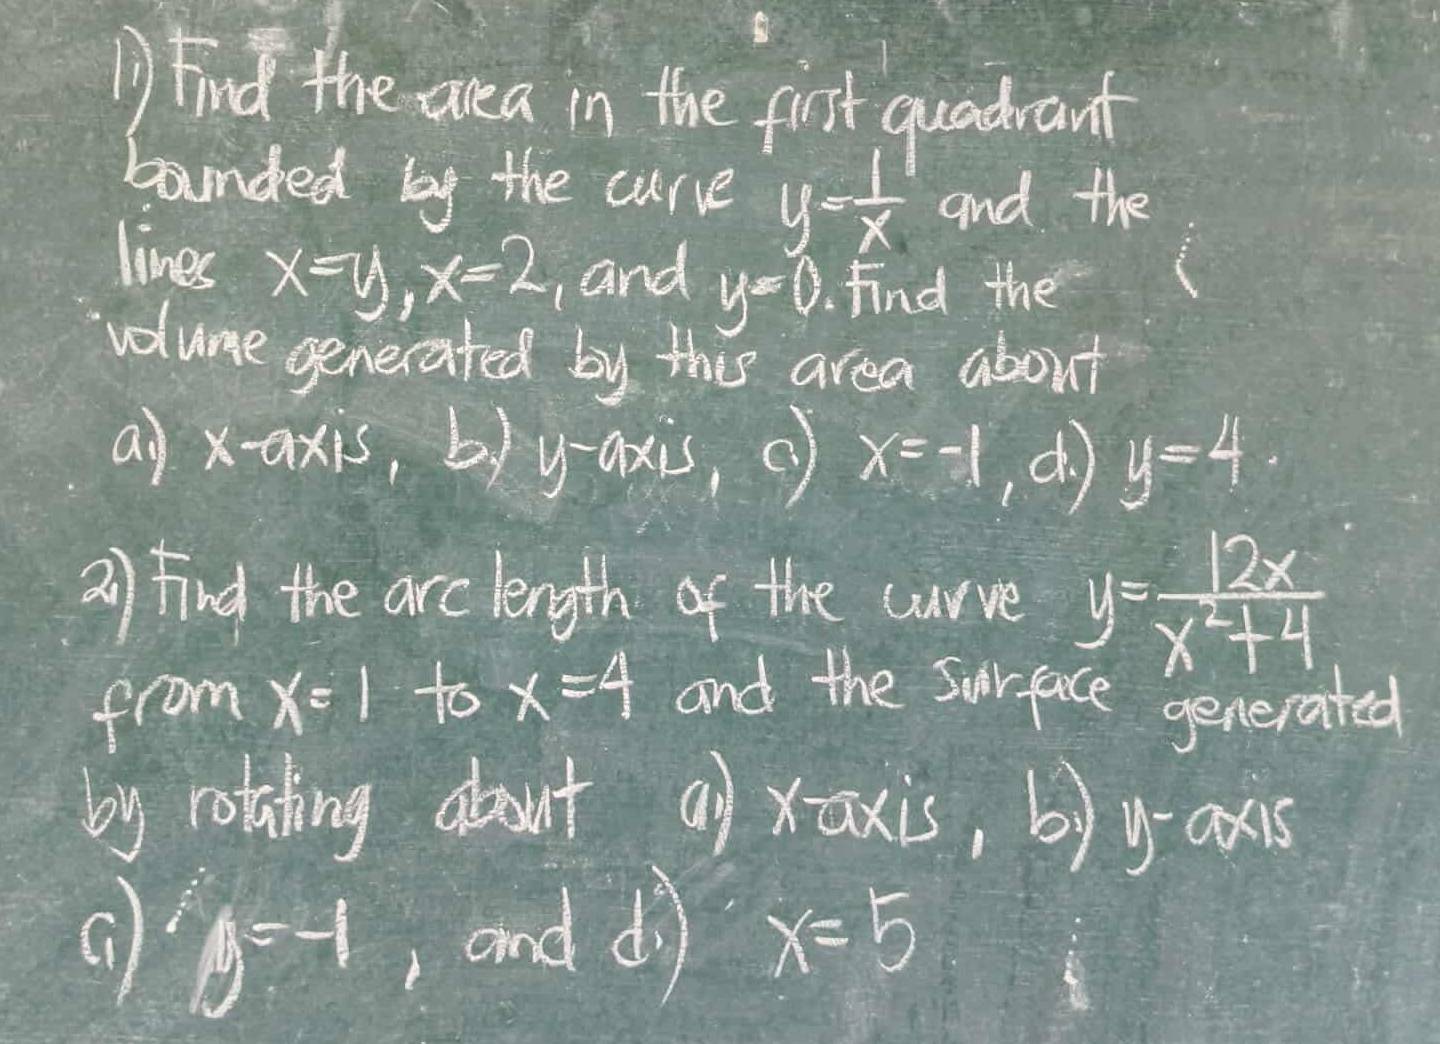 1.) Find the area in the first quadrant
bounded by the curve y=1/x and the
lines x=y, x=2, and y=0. Find the
volume generated by this area about
a.) x-axis, b.) y-axis, c.) x=-1, d.) y=4.
2.) Find the arc length of the curve y=12x/(x²+4)
from x=1 to x=4 and the surface generated
by rotating about a.) x-axis, b.) y-axis
c.) y=-1, and d.) x=5